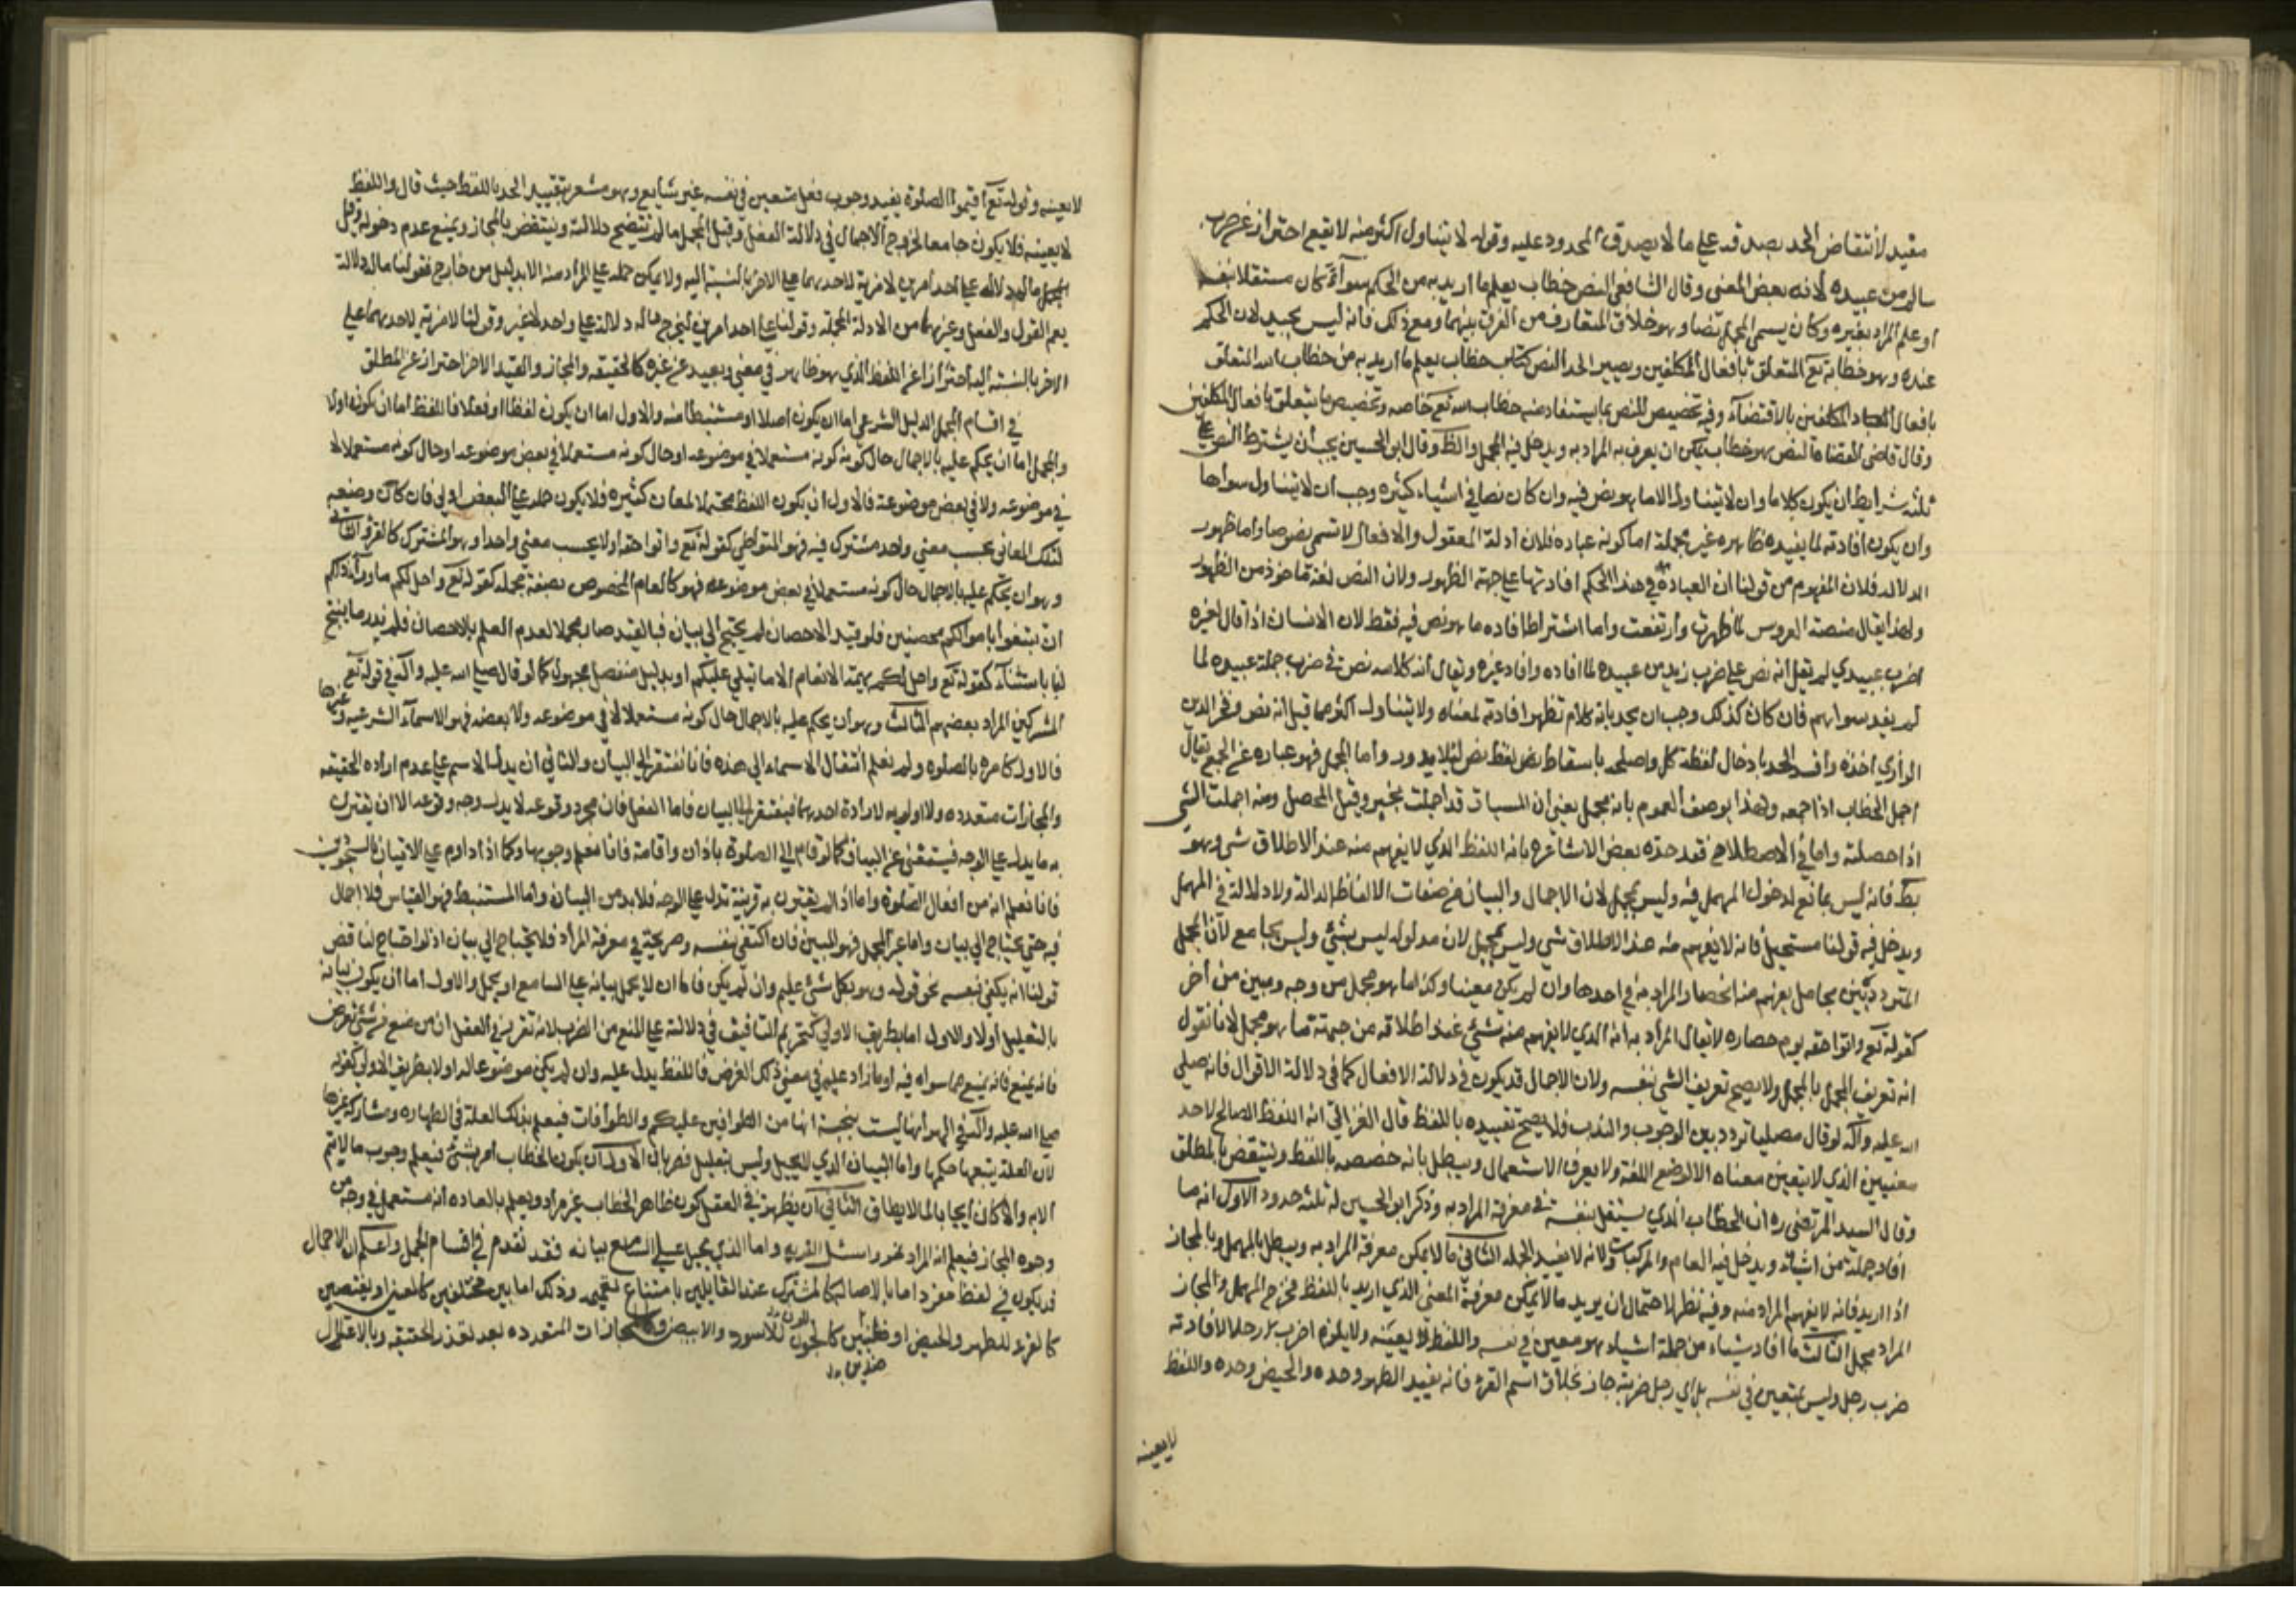 مقيد لانتقاض الحد بصدقه على ما لا يصدق المحدود عليه وقوله لا يتناول اكثر منه لا يقع احتراز عن ضرب
سالم من عبيده لانه بعض المعنى وقال الشافعي النص خطاب يعلم ما اريد به من الحكم سوآء كان مستقلا بنفسه
او علم المراد بغيره وكان يسمى المجمل نصا وهو خلاف المتعارف من الفرق بينهما ومع ذلك فانه ليس بجيد لان الحكم
عنده هو خطابه تع المتعلق بافعال المكلفين ويصير الحد النص خطاب يعلم ما اريد به من خطاب الله المتعلق
بافعال المكلفين بالاقتضآء وفيه تخصيص للنص بما يستفاد منه خطاب الله تع خاصه وتخصيص ما يتعلق بافعال المكلفين
وقال قاضي القضاة النص هو خطاب يمكن ان يعرف به المراد به ويدخل فيه المجمل والظ وقال ابو الحسين يجب ان يشترط النص على
ثلثه شرايط ان يكون كلاما وان لا يتناول الا ما هو نص فيه وان كان نصا في اشياء كثيره وجب ان لا يتناول سواها
وان يكون افادته لما يفيده ظاهره غير مجملة اما كونه عباده فلان ادلة المعقول والافعال لا تسمى نصوصا واما ظهور
الدلاله فلان المفهوم من قولنا ان العبادة في هذا الحكم افادتها على جهة الظهور ولان النص لغة مأخوذ من الظهور
ولهذا يقال منصة العروس لما ظهرت وارتفعت واما اشتراط افاده ما هو نص فيه فقط لان الانسان اذا قال لغيره
اضرب عبيدي لم يقل انه نص على ضرب زيد من عبيده لما افاده وافاد غيره ويقال انه كلامه نص في ضرب جملة عبيده لما
لم يفد سواهم فان كان كذلك وجب ان يحد بانه كلام تظهر افادته لمعناه ولا يتناول اكثر مما قيل انه نص وفخر الدين
الرازي اخذه وافسد الحد بادخال لفظة كل واصلحه باسقاط نص لفظ نص لئلا يدور واما المجمل فهو عباره عن الجمع يقال
اجمل الخطاب اذا جمعه ولهذا يوصف العموم بانه مجمل بمعنى ان المسميات قد اجملت تحته وقيل المحصل ومنه اجملت الشي
اذا حصلته واما في الاصطلاح فقد حده بعض الاشاعره بانه اللفظ الذي لا يفهم منه عند الاطلاق شي وهو
بط فانه ليس بمانع لدخول المهمل فيه وليس بمجمل لان الاجمال والبيان من صفات الالفاظ الدالة ولا دلالة في المهمل
ويدخل فيه قولنا مستحيل فانه لا يفهم منه عند الاطلاق شي وليس بمجمل لان مدلوله ليس بشئ وليس بجامع لان المجمل
المتردد بين محامل يفهم منه انحصار المراد به في احدها وان لم يكن معينا وكذا ما هو مجمل من وجه ومبين من اخر
كقوله تع واتوا حقه يوم حصاده لا يقال المراد به انه الذي لا يفهم منه شئ عند اطلاقه من جهة ما هو مجمل لانا نقول
انه تعريف المجمل بالمجمل ولا يصح تعريف الشي بنفسه ولان الاجمال قد يكون في دلالة الافعال كما في دلالة الاقوال فانه صلى
الله عليه وآله لو قال مصليا تردد بين الوجوب والندب فلا يصح تقييده باللفظ قال الغزالي انه اللفظ الصالح لاحد
معنيين الذي لا يتعين معناه الا لوضع اللغة ولا بعرف الاستعمال ويبطل بانه خصصه باللفظ وينتقض بالمطلق
وقال السيد المرتضى ره ان الخطاب الذي لا يستقل بنفسه في معرفة المراد به وذكر ابو الحسين له ثلثه حدود الاول انه ما
افاد جملة من اشياء ويدخل فيه العام والمركبات ولانه لا يفيد الجمله الثاني ما لا يمكن معرفة المراد به ويبطل بالمهمل وبالمجاز
اذا اريد فانه لا يفهم المراد منه وفيه نظر لاحتمال ان يريد ما لا يمكن معرفة المعنى الذي اريد باللفظ فخرج المهمل والمجاز
المراد مجمل الثالث ما افاد شياء من جملة اشياء هو معين في نفسه واللفظ لا يعينه ولا يلزمه اضرب رجلا لافادته
ضرب رجل وليس بمتعين في نفسه بل اي رجل ضربته جاز بخلاف اسم القرء فانه يفيد الطهر وحده والحيض وحده واللفظ
لا يعينه
لا يعينه وقوله تع اقيموا الصلوة يفيد وجوب فعل متعين في نفسه غير شايع وهو مشعر بتقييد الحد باللفظ حيث قال واللفظ
لا يعينه فلا يكون جامعا لخروج الاجمال في دلالة الفعل وقيل المجمل ما لم تتضح دلالته وينتقض بالمجاز ويمنع عدم دخوله وقيل
المجمل ما له دلالة على احد امرين لا مزية لاحدهما على الاخر بالنسبة اليه ولا يمكن حمله على المراد منه الا بدليل من خارج فقولنا ما له دلالة
يعم القول والفعل وغيرهما من الادلة المجملة وقولنا على احد امرين ليخرج ما له دلالة على واحد لا غير وقولنا لا مزية لاحدهما على
الاخر بالنسبة اليه احترازا عن اللفظ الذي هو ظاهر في معنى وبعيد عن غيره كالحقيقه والمجاز والقيد الاخر احتراز عن المطلق
في اقسام المجمل الدليل الشرعي اما ان يكون اصلا او مستنبطا منه والاول اما ان يكون لفظا او فعلا فاللفظ اما ان يكون اولا
والمجمل اما ان يحكم عليه بالاجمال حال كونه مستعملا في موضوعه او حال كونه مستعملا في بعض موضوعه او حال كونه مستعملا لا
في موضوعه ولا في بعض موضوعه فالاول ان يكون اللفظ محتملا لمعان كثيره فلا يكون حمله على البعض اولى فان كان وضعه
لتلك المعاني بحسب معنى واحد مشترك فيه فهو المتواطي كقوله تع واتوا حقه اولا بحسب معنى واحد وهو المشترك كالقرء الثاني
وهو ان يحكم عليه بالاجمال حال كونه مستعملا في بعض موضوعه فهو كالعام المخصوص بصفة مجملة كقوله تع واحل لكم ما ورآء ذلكم
ان تبتغوا باموالكم محصنين فلو قيد الاحصان لم يحتج الى بيان فبالقيد صار مجملا لعدم العلم بالاحصان فلم ندر ما ابيح
لنا باستثنآء كقوله تع واحل لكم بهيمة الانعام الا ما يتلى عليكم او بدليل منفصل مجهول كما لو قال صلى الله عليه وآله في قوله تع
المشركين المراد بعضهم الثالث وهو ان يحكم عليه بالاجمال حال كونه مستعملا لا في موضوعه ولا بعضه فهو الاسمآء الشرعيه وغيرها
فالاول كامره بالصلوه ولم نعلم انتقال الاسماء الى هذه فانا نفتقر الى البيان والثاني ان يدل الاسم على عدم اراده الحقيقه
والمجازات متعدده ولا اولويه لارادة احدهما فيفتقر الى البيان فاما الفعل فان مجرد وقوعه لا يدل وجه وقوعه الا ان يقترن
به ما يدل على الوجه فيستغنى عن البيان كما لو قام الى الصلوة باذان واقامة فانا نعلم وجوبها وكما اذا داوم على الاتيان بالسجودين
فانا نعلم انه من افعال الصلوة واما اذا لم يقترن به قرينة تدل على الوجه فلا بد من البيان واما المستنبط فهو القياس فلا اجمال
فيه حتى يحتاج الى بيان واما غير المجمل فهو المبين فان اكتفى بنفسه وصريحه في معرفة المراد فلا يحتاج الى بيان اذ لو احتاج لناقض
قولنا انه يكفي بنفسه نحو قوله وهو بكل شئ عليم وان لم يكن فاما ان لا يحل بيانه على السامع او يحل والاول اما ان يكون بيانه
بالتعليل اولا والاول اما بطريق الاولى كتحريم التافيف في دلالته على المنع من الضرب لانه تقرر في العقل ان من منع من شئ لغرض
فانه يمنع مما سواه فيه او ما زاد عليه في معنى ذلك الغرض فاللفظ يدل عليه وان لم يكن موضوعا له او لا بطريق الاولى كقوله
صلى الله عليه وآله في الهر انها ليست بنجسة انها من الطوافين عليكم والطوافات فيعلم بذلك العلة في الطهاره ومشاركة غيرها
لان العلة يتبعها حكمها واما البيان الذي ليس بتعليل فضربان الاول ان يكون الخطاب امر بشئ فيعلم وجوب ما لا يتم
الا به والا كان ايجابا لما لا يطاق الثاني ان يظهر في العقل كون ظاهر الخطاب غير مراد ويعلم بالعاده انه مستعمل في وجه من
وجوه المجاز فيعلم انه المراد نحو واسئل القريه واما الذي يحيل على السامع بيانه فقد تقدم في اقسام المجمل واعلم ان الاجمال
قد يكون في لفظ مفرد اما بالاصاله كالمشترك عند القايلين بامتناع تعميمه وذلك اما بين مختلفين كالعين او نقيضين
كالقرء للطهر والحيض او ضدين كالجون للاسود والابيض والمجازات المتعدده بعد تعذر الحقيقه وبالاعتلال
ضدين بدل